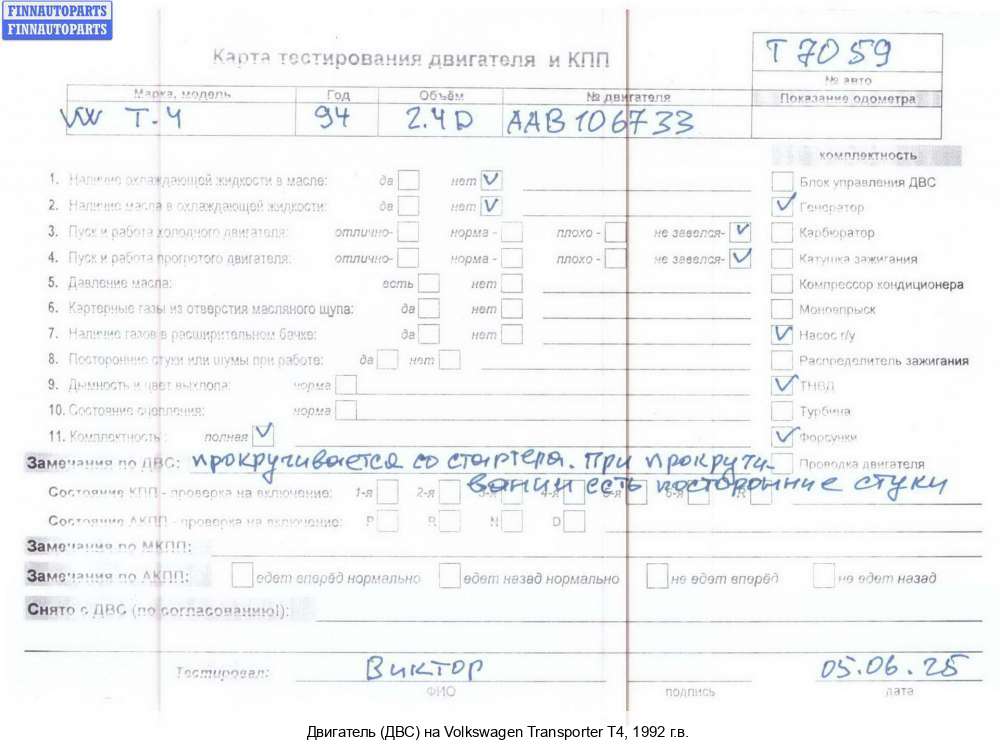 FINNAUTOPARTS
FINNAUTOPARTS
Карта тестирования двигателя и КПП
T 7059
№ авто
Марка, модель Год Объём № двигателя Показание одометра
VW T-4 94 2.4D AAB106733
комплектность
1. Наличие охлаждающей жидкости в масле: да нет Блок управления ДВС
2. Наличие масла в охлаждающей жидкости: да нет Генератор
3. Пуск и работа холодного двигателя: отлично- норма - плохо - не завелся- Карбюратор
4. Пуск и работа прогретого двигателя: отлично- норма - плохо - не завелся- Катушка зажигания
5. Давление масла: есть нет Компрессор кондиционера
6. Картерные газы из отверстия масляного щупа: да нет Моновпрыск
7. Наличие газов в расширительном бачке: да нет Насос г/у
8. Посторонние стуки или шумы при работе: да нет Распределитель зажигания
9. Дымность и цвет выхлопа: норма ТНВД
10. Состояние сцепления: норма Турбина
11. Комплектность: полная Форсунки
Замечания по ДВС: прокручивается со стартера. При прокручи- Проводка двигателя
вании есть посторонние стуки
Состояние КПП - проверка на включение: 1-я 2-я 3-я 4-я 5-я 6-я R
Состояние АКПП - проверка на включение: P R N D
Замечания по МКПП:
Замечания по АКПП: едет вперёд нормально едет назад нормально не едет вперёд не едет назад
Снято с ДВС (по согласованию!):
Тестировал: Виктор 05.06.25
ФИО подпись дата
Двигатель (ДВС) на Volkswagen Transporter T4, 1992 г.в.